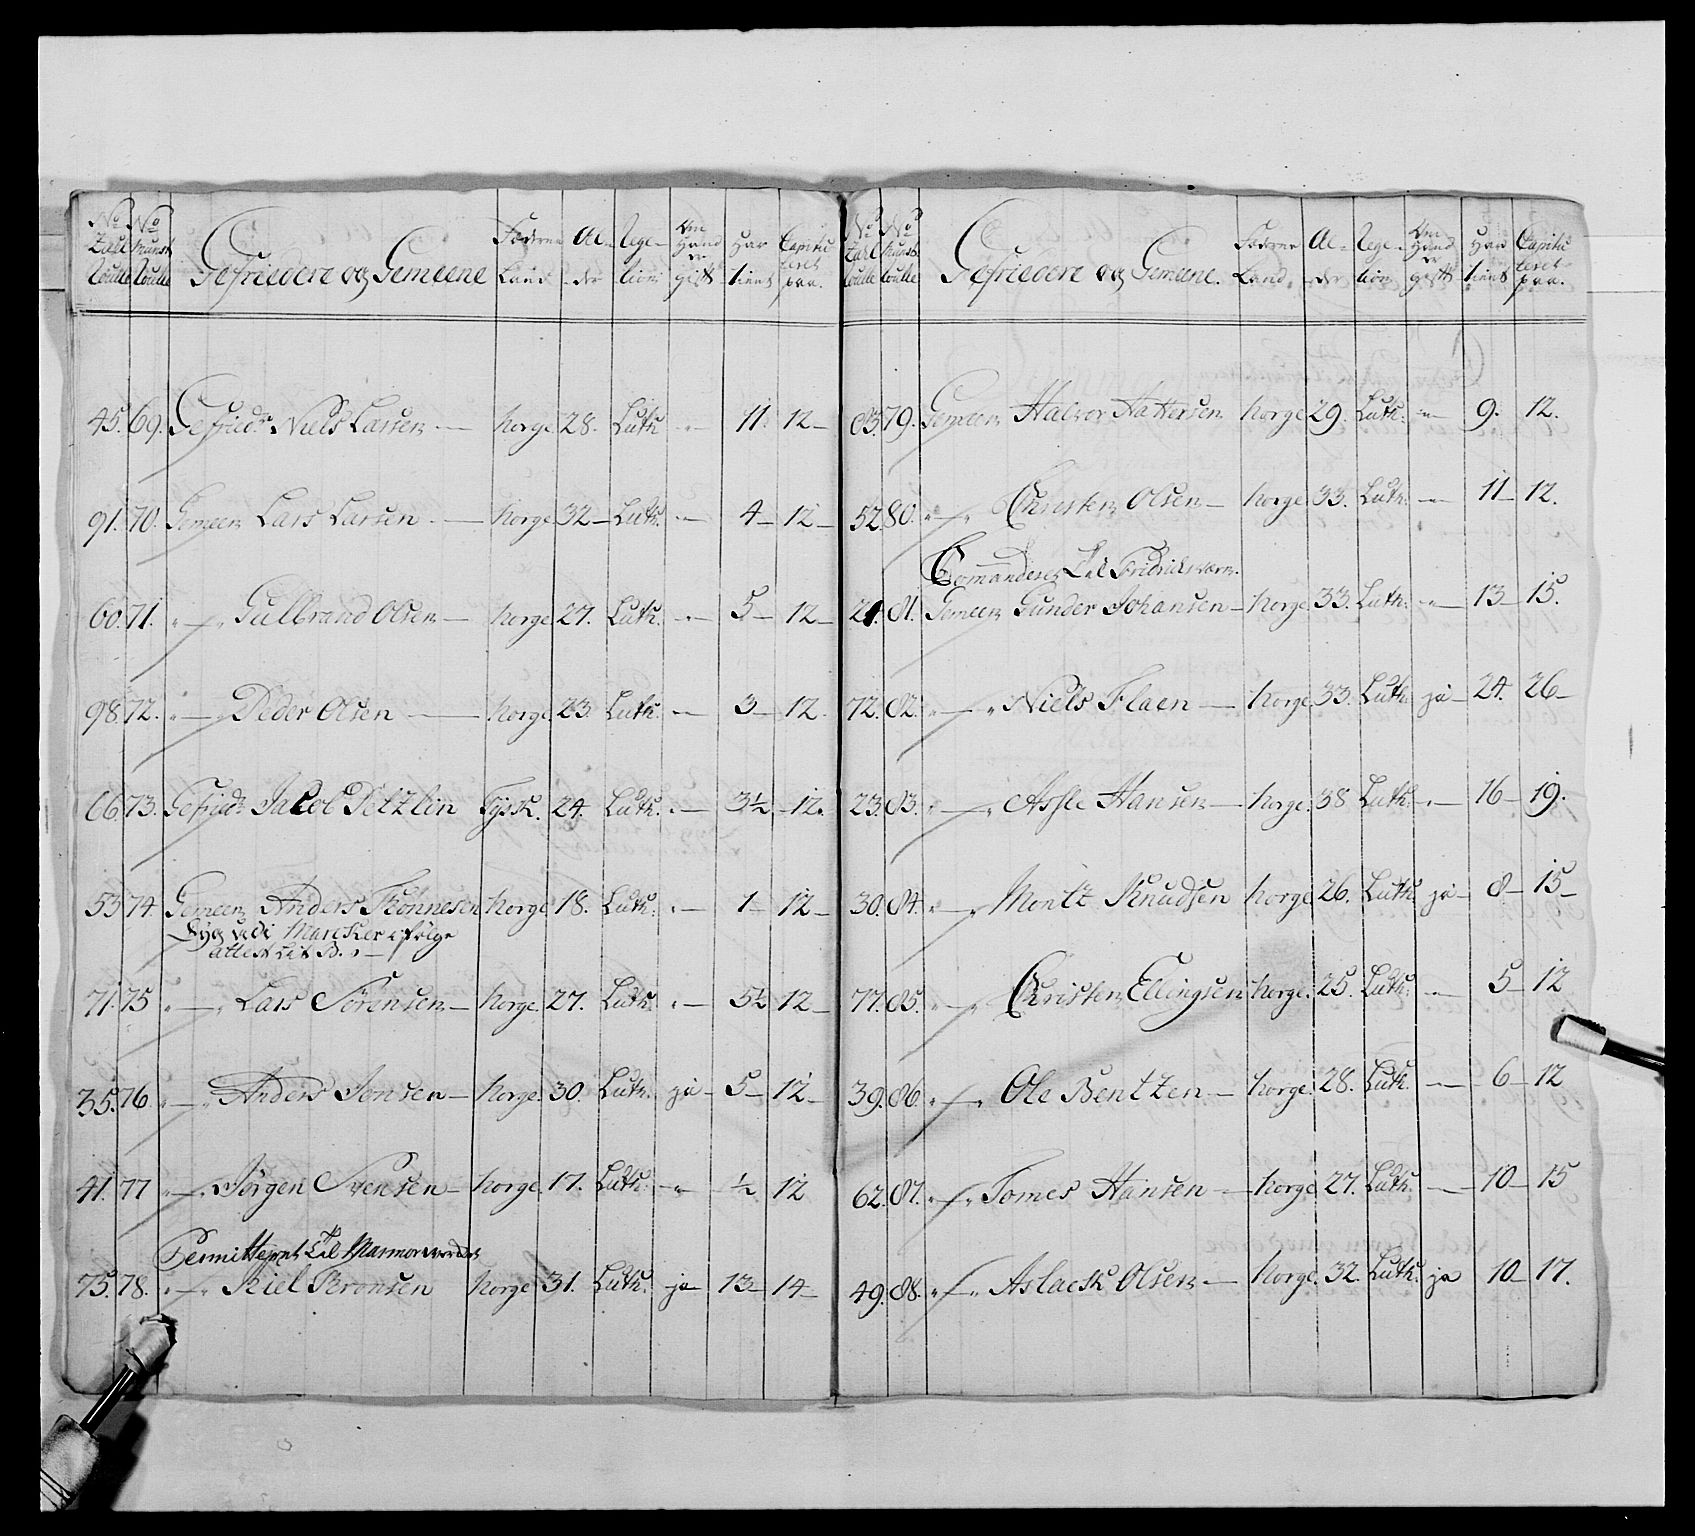 No No Gefriedere og Gemeene Fæderne Al- Rege- Om Hand Har Capitu
Zall Munst Land der lion er gift tient leret
Roulle Roulle paa.
45. 69. Gefridr Niels Larsen — Norge 28. Luth " 11. 12 —
91. 70. Gemeen Lars Larsen — Norge 32 — Luth. " — 4 — 12 —
60. 71. " — " Gulbrand Olsen — Norge 27. Luth. " — 5 — 12 —
98. 72. " — " Peder Olsen — Norge 23. Luth. " — 3 — 12.
66. 73. Gefridr Jacob Petzlin Tysk. 24. Luth. " — 3½ — 12.
53 74. Gemeen Anders Tönnesen Norge 18. Luth. " — 1 — 12 —
Syg ved i Marcker ifølge
attest Lit B. " —
71. 75 " — " Lars Sörensen — Norge. 27. Luth. " — 5½ 12 —
35. 76 " — " Anders Jensen — Norge. 30. Luth. ja — 5 — 12 —
41. 77 " — " Jörgen Svensen — Norge. 17. Luth. — " — ½ 12
Permitteret Til Marmorverdet
75. 78. " — " Kiel Bronsen Norge 31. Luth. ja 13 — 14 —
No No Gefriedere og Gemeene. Fæderne Al- Rege- Om Hand Har Capitu
Zall Munst Land. der lion er gift tient leret
Roulle Roulle paa.
83. 79. Gemeen Halvor Hattersen Norge 29. Luth. " 9. 12.
52. 80. " — " Christen Olsen — Norge 33. Luth. — " — 11 — 12.
Comanderet Til Fridrichsværn.
24. 81. Gemeen Gunder Johansen — Norge 33. Luth. " — 13 — 15.
72. 82. " — " Niels Flaen — Norge 33. Luth. ja — 24. 26 —
23. 83. " — " Assle Hansen — Norge. 38 Luth. " — 16 — 19.
30. 84. " — " Montz Knudsen Norge 26. Luth. ja — 8 — 15 —
77. 85. " — " Christen Ellingsen Norge. 25. Luth. — 5 — 12
39. 86. " — " Ole Bentzen — Norge. 28. Luth. — 6 — 12
62. 87. " — " Tomes Hansen — Norge. 27. Luth. — 10 — 15
49. 88. " — " Aslack Olsen — Norge. 32. Luth. ja 10 — 17.